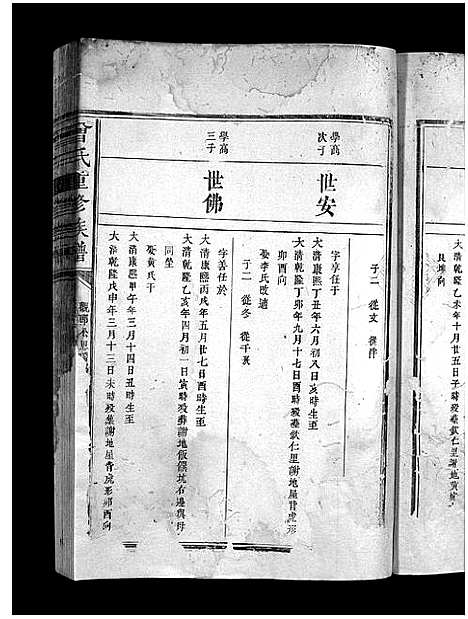 良坤向
學高
次子
世安
子二 從文
字享任于
大清康熙丁丑年六月初八日亥時生至
大清乾隆丁卯年九月十七日寅時殁葬歙仁里謝地屋背虎形
卯酉向
娶李氏改適
子二 從冬 從千
學高
三子
世佛
字善任於
大清康熙丙戌年五月廿七日酉時生至
大清乾隆乙亥年四月初一日寅時殁葬謝地飯籮坑右邊與母
同塋
娶黄氏于
大清康熙甲午年三月十四日丑時生至
大清乾隆戊申年三月十三日未時殁葬謝地屋背虎形卯酉向
曾氏重修族譜